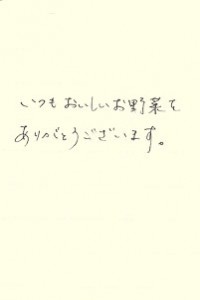 いつもおいしいお野菜を
ありがとうございます。